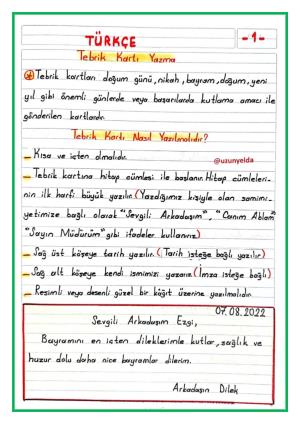 TÜRKÇE
-1-
Tebrik Kartı Yazma
Tebrik kartları doğum günü, nikah, bayram, doğum, yeni
yıl gibi önemli günlerde veya başarılarda kutlama amacı ile
gönderilen kartlardır.
Tebrik Kartı Nasıl Yazılmalıdır?
– Kısa ve içten olmalıdır.
@uzunyelda
– Tebrik kartına hitap cümlesi ile başlanır. Hitap cümleleri-
nin ilk harfi büyük yazılır (Yazdığımız kişiyle olan samimi-
yetimize bağlı olarak "Sevgili Arkadaşım", "Canım Ablam"
"Sayın Müdürüm" gibi ifadeler kullanırız)
– Sağ üst köşeye tarih yazılır. (Tarih isteğe bağlı yazılır)
– Sağ alt köşeye kendi ismimizi yazarız (İmza isteğe bağlı)
– Resimli veya desenli güzel bir kâğıt üzerine yazılmalıdır.
07.08.2022
Sevgili Arkadaşım Ezgi,
Bayramını en içten dileklerimle kutlar, sağlık ve
huzur dolu daha nice bayramlar dilerim.
Arkadaşın Dilek